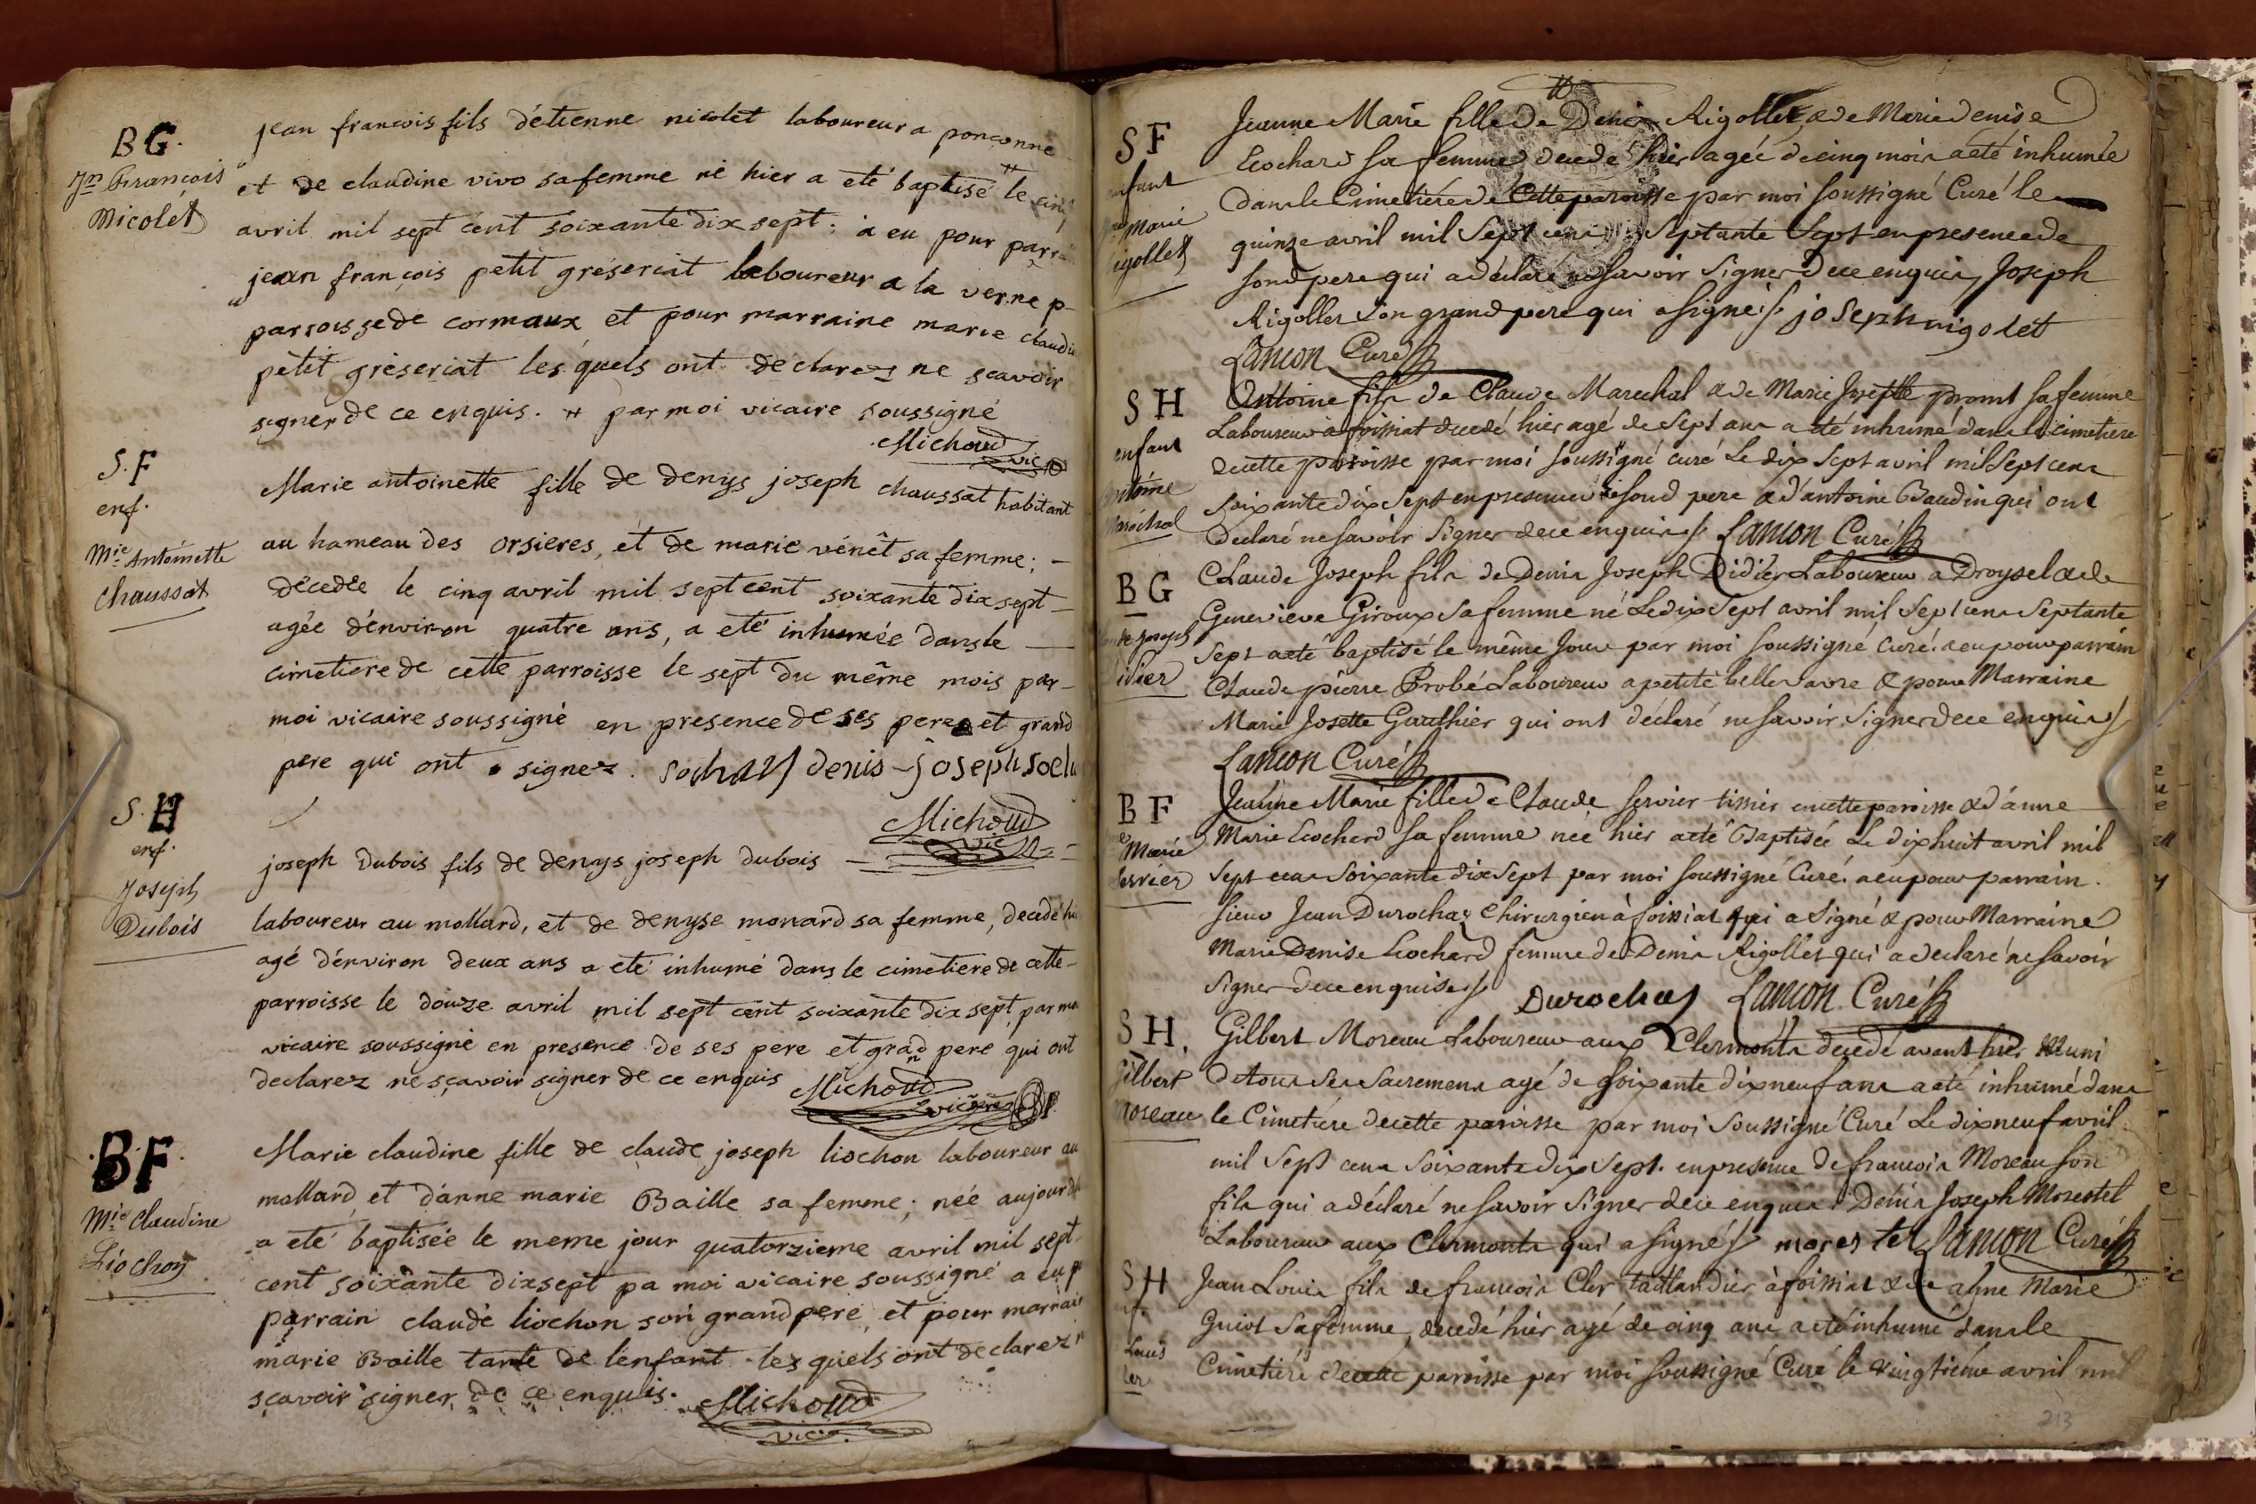 BG.
Jn François
Nicolet
jean francois fils d'étienne nicolet laboureur a ponconne
et de claudine vivo sa femme né hier a eté baptisé # le cinq
avril mil sept cent soixante dix sept. a eu pour parr
jean françois petit greseriat laboureur a la verne p-
parroisse de cormaux et pour marraine marie claudi
petit greseriat les quels ont declarez ne scavoir
signer de ce enquis. # par moi vicaire soussigné
Michoud
vic
S.F
enf.
Mie Antoinette
Chaussat
Marie antoinette fille de denys joseph chaussat habitant
au hameau des orsieres, et de marie vénêt sa femme; -
decedée le cinq avril mil sept cent soixante dix sept -
agée d'environ quatre ans, a eté inhumée dans le -
cimetiere de cette parroisse le sept du même mois par -
moi vicaire soussigné en presence de ses pere et grand
pere qui ont signez. denis joseph
Michoud
vic
S.H
enf.
Joseph
Dubois
joseph dubois fils de denys joseph dubois -
laboureur au mollard, et de denyse monard sa femme, decedé hi
agé d'environ deux ans a eté inhumé dans le cimetiere de cette -
parroisse le douze avril mil sept cent soixante dix sept par moi
vicaire soussigné en presence de ses pere et grand pere qui ont
declarez ne sçavoir signer de ce enquis Michoud
vicaire
BF.
Mie Claudine
Liochon
Marie claudine fille de claude joseph liochon laboureur au
mollard et d'anne marie Baille sa femme; née aujourd
a eté baptisée le meme jour quatorzieme avril mil sept
cent soixante dix sept pa moi vicaire soussigné a eu p
parrain claude liochon son grand pere, et pour marrain
marie Baille tante de l'enfant. les quels ont declarez n
sçavoir signer de ce enquis. Michoud
vic.
SF
enfant
Marie
igollet
Jeanne Marie fille de Denis Rigollet & de Marie denise
Liochard sa femme decedé hier agée de cinq mois a eté inhumée
dans le Cimetiére de Cette paroisse par moi soussigné Curé le
quinze avril mil Sept cens Septante Sept en presence de
son pere qui a déclaré ne savoir signer de ce enquis, Joseph
Rigollet son grand pere qui a signé joseph rigolet
Lancon Curé
SH
enfant
Antoine
Maréchal
Antoine fils de Claude Marechal & de Marie Josephte promt sa femme
Laboureur a foissiat decedé hier agé de Sept ans a eté inhumé dans le cimetiere
de cette paroisse par moi soussigné curé Le dix Sept avril mil Sept cens
soixante dix Sept en presence de son pere & d'antoine Baudin qui ont
Declaré ne savoir signer de ce enquis Lancon Curé
BG
de Joseph
idier
Claude Joseph fils de Denis Joseph Didier Laboureur a Droysel & de
Genevieve Giroux sa femme né Le dix Sept avril mil Sept cens Septante
Sept a eté baptisé le même Jour par moi soussigné curé. a eu pour parrain
Claude pierre Probé Laboureur a petite belle vavre & pour Marraine
Marie Josette Gauthier qui ont déclaré ne savoir signer de ce enquis
Lancon Curé
BF
Marie
servier
Jeanne Marie fille de Claude servier tissier en cette paroisse & d'anne
Marie Liochard sa femme née hier a eté Baptisée Le dix huit avril mil
Sept cens soixante dix Sept par moi soussigné Curé. a eu pour parrain.
sieur Jean Durochat Chirurgien à foissiat qui a signé & pour Marraine
Marie Denise Liochard femme de Denis Rigollet qui a declaré ne savoir
signer de ce enquise Durochat Lancon Curé
SH.
Gilbert
Moreau
Gilbert Moreau Laboureur aux Clermonts decedé avant hier Muni
de tous ses sacremens agé de soixante dix neuf ans a eté inhumé dans
le Cimetiére de cette paroisse par moi soussigné Curé Le dix neuf avril
mil Sept cens soixante dix Sept. en presence de francois Moreau son
fils qui a déclaré ne savoir signer de ce enquis & Denis Joseph Morestel
Laboureur aux Clermonts qui a signé morestel Lancon Curé
SH
Louis
ler
Jean Louis fils de francois Cler taillandier à foissiat & de anne Marie
Guiot sa femme, decedé hier agé de cinq ans a eté inhumé dans le
Cimetiére de cette paroisse par moi soussigné Curé le vingtiéme avril mil
213